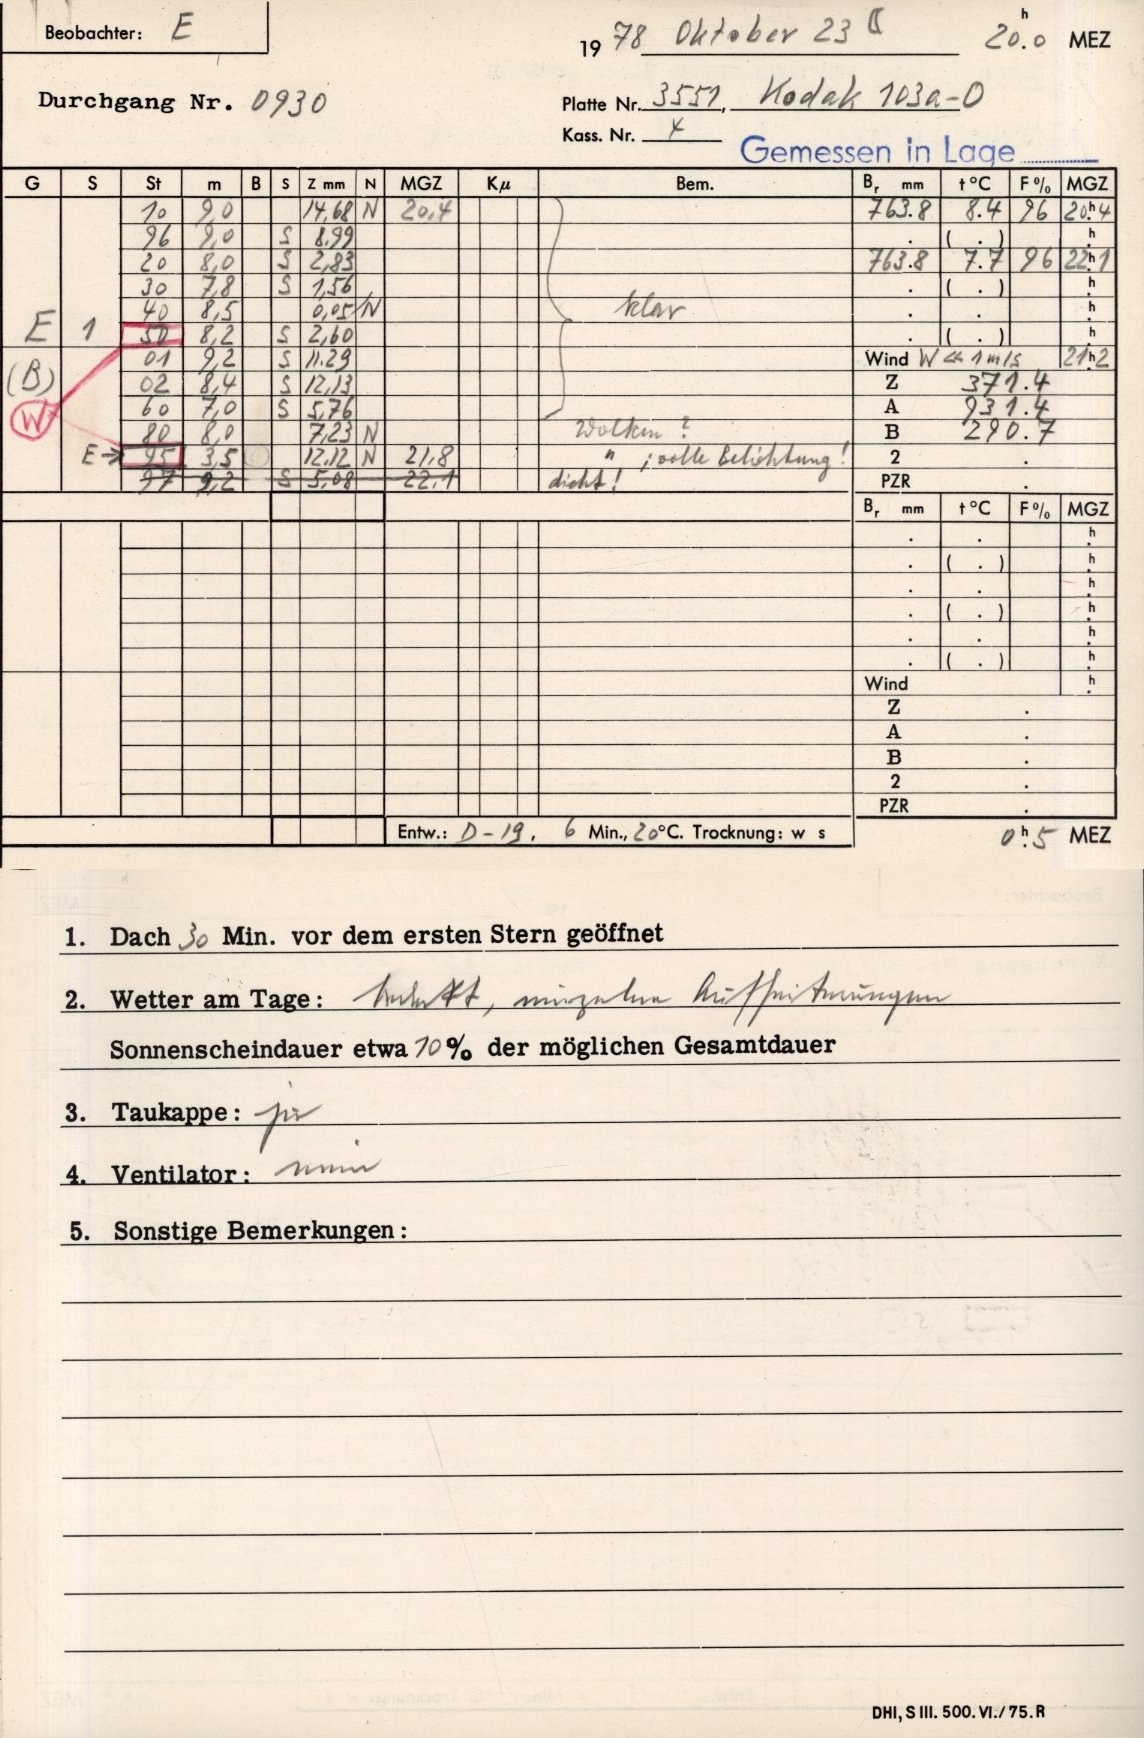 Beobachter: E
1978 Oktober 23 20h.0 MEZ
Durchgang Nr. 0930
Platte Nr. 3551, Kodak 103a-O
Kass. Nr.
Gemessen in Lage
G S St m B S Z mm N MGZ Kμ Bem. Br mm t°C F% MGZ
10 9,0 14,68 N 20,4 763.8 8.4 96 20h4
96 9,0 S 8,99 . ( . ) h
20 8,0 S 2,83 763.8 7.7 96 22h1
30 7,8 S 1,56 . ( . ) h
40 8,5 0,05 N klar . . h
E 1 50 8,2 S 2,60 . ( . ) h
01 9,2 S 11.29 Wind W << 1 m/s 21h2
(B) 02 8,4 S 12,13 Z 371.4
W 60 7,0 S 5,76 A 931.4
80 8,0 7,23 N Wolken? B 290.7
E → 95 3,5 12,12 N 21,8 " ; volle Belichtung! 2 .
97 9,2 S 5,08 22.1 dicht! PZR .
Br mm t°C F% MGZ
. . h
. ( . ) h
. . h
. ( . ) h
. . h
. ( . ) h
Wind h
Z .
A .
B .
2 .
PZR .
Entw.: D-19. 6 Min., 20°C. Trocknung: w s 0h.5 MEZ
1. Dach 30 Min. vor dem ersten Stern geöffnet
2. Wetter am Tage: bedeckt, einzelne Aufheiterungen
Sonnenscheindauer etwa 10% der möglichen Gesamtdauer
3. Taukappe: ja
4. Ventilator: nein
5. Sonstige Bemerkungen:
DHI, S III. 500. VI./75. R